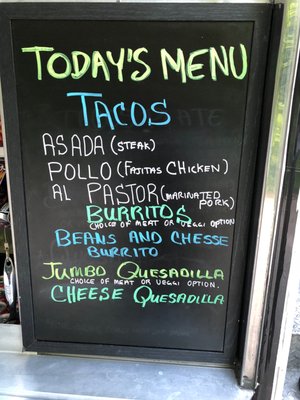 TODAY'S MENU
TACOS
ASADA (STEAK)
POLLO (FAJITAS CHICKEN)
AL PASTOR (MARINATED PORK)
BURRITOS
CHOICE OF MEAT OR VEGGI OPTION
BEANS AND CHESSE
BURRITO
JUMBO QUESADILLA
CHOICE OF MEAT OR VEGGI OPTION.
CHEESE QUESADILLA